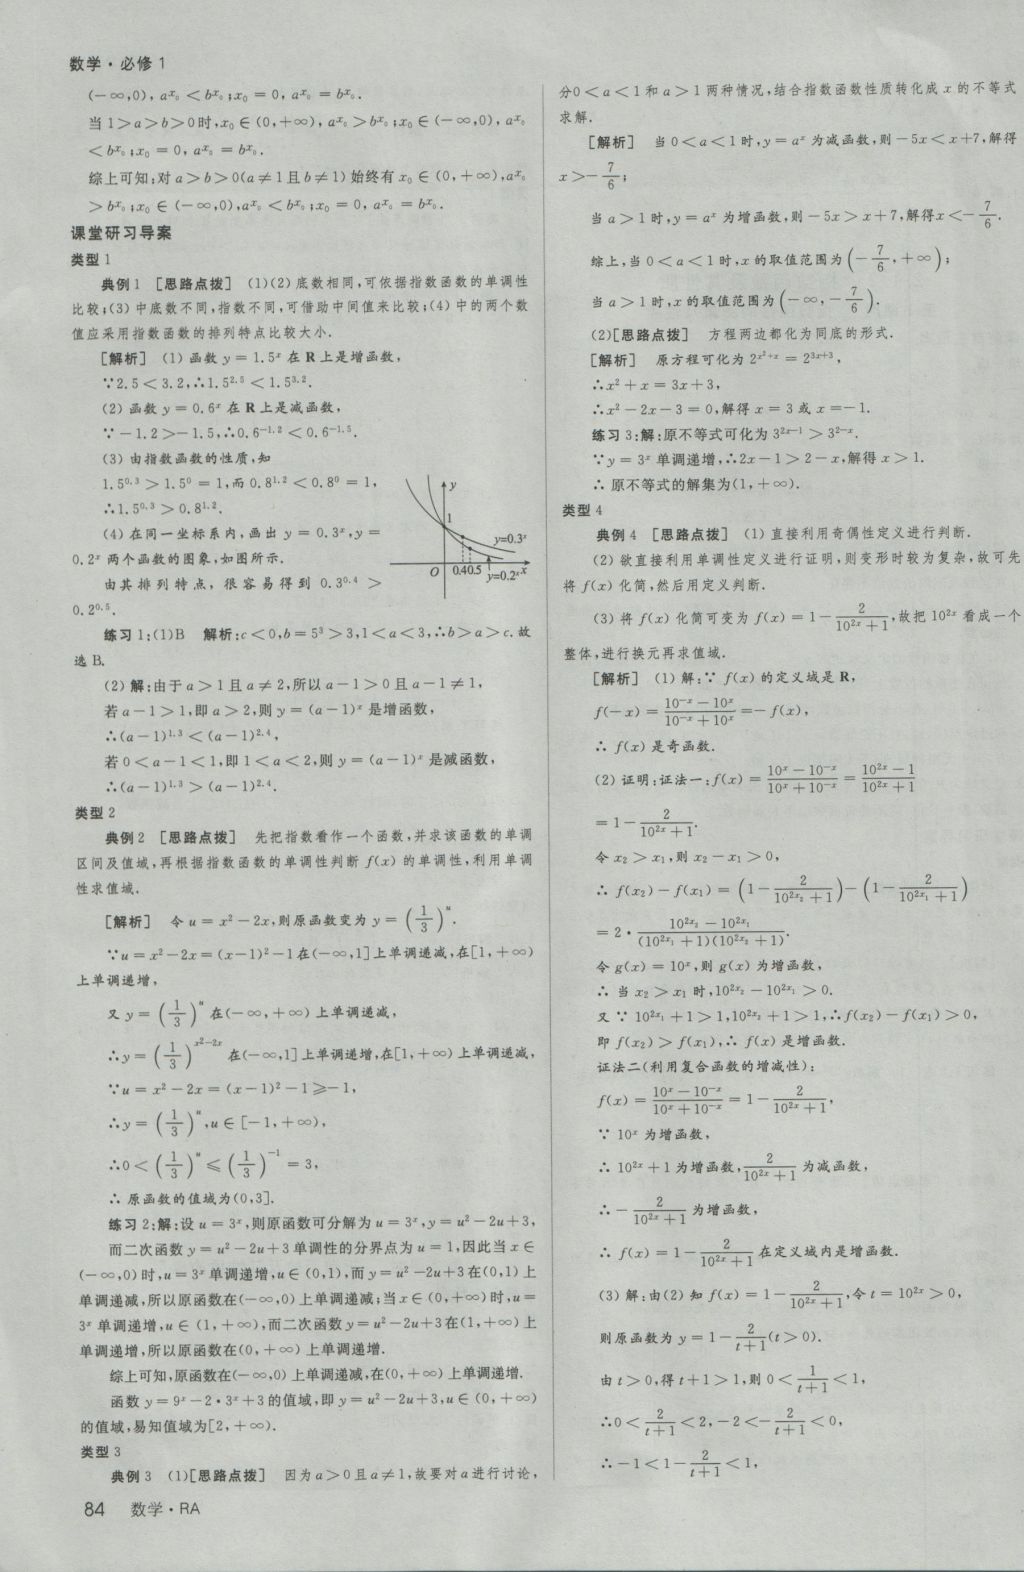 数学·必修1
(-∞,0), a^{x₀} < b^{x₀}; x₀ = 0, a^{x₀} = b^{x₀}.
当1>a>b>0时,x₀∈(0,+∞), a^{x₀} > b^{x₀}; x₀∈(-∞,0), a^{x₀}
< b^{x₀}; x₀ = 0, a^{x₀} = b^{x₀}.
综上可知:对a>b>0(a≠1且b≠1)始终有x₀∈(0,+∞),a^{x₀}
> b^{x₀}; x₀∈(-∞,0),a^{x₀} < b^{x₀}; x₀ = 0, a^{x₀} = b^{x₀}.
课堂研习导案
类型1
典例1 [思路点拨] (1)(2)底数相同,可依据指数函数的单调性
比较;(3)中底数不同,指数不同,可借助中间值来比较;(4)中的两个数
值应采用指数函数的排列特点比较大小.
[解析] (1)函数 y = 1.5^x 在 R 上是增函数,
∵2.5<3.2,∴1.5^{2.5} < 1.5^{3.2}.
(2)函数 y = 0.6^x 在 R 上是减函数,
∵-1.2>-1.5,∴0.6^{-1.2} < 0.6^{-1.5}.
(3)由指数函数的性质,知
1.5^{0.3} > 1.5^0 = 1,而 0.8^{1.2} < 0.8^0 = 1,
∴1.5^{0.3} > 0.8^{1.2}.
(4)在同一坐标系内,画出 y = 0.3^x, y =
0.2^x 两个函数的图象,如图所示.
由其排列特点,很容易得到 0.3^{0.4} >
0.2^{0.5}.
y
1
y=0.3^x
O 0.4 0.5 x
y=0.2^x
练习1:(1)B 解析:c<0,b=5^3>3,1<a<3,∴b>a>c.故
选B.
(2)解:由于a>1且a≠2,所以a-1>0且a-1≠1,
若a-1>1,即a>2,则y=(a-1)^x 是增函数,
∴(a-1)^{1.3} < (a-1)^{2.4},
若0<a-1<1,即1<a<2,则y=(a-1)^x 是减函数,
∴(a-1)^{1.3} > (a-1)^{2.4}.
类型2
典例2 [思路点拨] 先把指数看作一个函数,并求该函数的单调
区间及值域,再根据指数函数的单调性判断 f(x) 的单调性,利用单调
性求值域.
[解析] 令 u = x²-2x,则原函数变为 y = (1/3)^u.
∵u = x²-2x = (x-1)²-1在(-∞,1]上单调递减,在[1,+∞)
上单调递增,
又 y = (1/3)^u 在(-∞,+∞)上单调递减,
∴y = (1/3)^{x²-2x} 在(-∞,1]上单调递增,在[1,+∞)上单调递减,
∵u = x²-2x = (x-1)²-1≥-1,
∴y = (1/3)^u, u∈[-1,+∞),
∴0 < (1/3)^u ≤ (1/3)^{-1} = 3,
∴ 原函数的值域为(0,3].
练习2:解:设 u = 3^x,则原函数可分解为 u = 3^x, y = u²-2u+3,
而二次函数 y = u²-2u+3 单调性的分界点为 u = 1,因此当 x∈
(-∞,0)时,u = 3^x 单调递增,u∈(0,1),而 y = u²-2u+3在(0,1)上
单调递减,所以原函数在(-∞,0)上单调递减;当x∈(0,+∞)时,u =
3^x 单调递增,u∈(1,+∞),而二次函数 y = u²-2u+3在(1,+∞)上
单调递增,所以原函数在(0,+∞)上单调递增.
综上可知,原函数在(-∞,0)上单调递减,在(0,+∞)上单调递增.
函数 y = 9^x-2·3^x+3的值域,即 y = u²-2u+3,u∈(0,+∞)
的值域,易知值域为[2,+∞).
类型3
典例3 (1)[思路点拨] 因为a>0且a≠1,故要对a进行讨论,
84 数学·RA
分0<a<1和a>1两种情况,结合指数函数性质转化成 x 的不等式
求解.
[解析] 当0<a<1时,y = a^x 为减函数,则-5x<x+7,解得
x>-7/6;
当a>1时,y = a^x 为增函数,则-5x>x+7,解得x<-7/6.
综上,当0<a<1时,x的取值范围为(-7/6,+∞);
当a>1时,x的取值范围为(-∞,-7/6).
(2)[思路点拨] 方程两边都化为同底的形式.
[解析] 原方程可化为 2^{x²+x} = 2^{3x+3},
∴x²+x = 3x+3,
∴x²-2x-3 = 0,解得 x = 3 或 x =-1.
练习3:解:原不等式可化为 3^{2x-1} > 3^{2-x}.
∵y = 3^x 单调递增,∴2x-1>2-x,解得x>1.
∴ 原不等式的解集为(1,+∞).
类型4
典例4 [思路点拨] (1)直接利用奇偶性定义进行判断.
(2)欲直接利用单调性定义进行证明,则变形时较为复杂,故可先
将 f(x) 化简,然后用定义判断.
(3)将 f(x) 化简可变为 f(x) = 1-2/(10^{2x}+1),故把 10^{2x} 看成一个
整体,进行换元再求值域.
[解析] (1)解:∵ f(x)的定义域是R,
f(-x) = (10^{-x}-10^x)/(10^{-x}+10^x) =-f(x),
∴ f(x)是奇函数.
(2)证明:证法一:f(x) = (10^x-10^{-x})/(10^x+10^{-x}) = (10^{2x}-1)/(10^{2x}+1)
= 1-2/(10^{2x}+1).
令 x₂>x₁,则 x₂-x₁>0,
∴ f(x₂)-f(x₁) = (1-2/(10^{2x₂}+1))-(1-2/(10^{2x₁}+1))
= 2·(10^{2x₂}-10^{2x₁})/((10^{2x₁}+1)(10^{2x₂}+1)).
令 g(x) = 10^x,则 g(x)为增函数,
∴ 当 x₂>x₁时,10^{2x₂}-10^{2x₁}>0.
又∵ 10^{2x₁}+1>1,10^{2x₂}+1>1,∴f(x₂)-f(x₁)>0,
即 f(x₂)>f(x₁),∴ f(x)是增函数.
证法二(利用复合函数的增减性):
f(x) = (10^x-10^{-x})/(10^x+10^{-x}) = 1-2/(10^{2x}+1),
∵ 10^x 为增函数,
∴ 10^{2x}+1为增函数,2/(10^{2x}+1) 为减函数,
∴ -2/(10^{2x}+1) 为增函数,
∴ f(x) = 1-2/(10^{2x}+1) 在定义域内是增函数.
(3)解:由(2)知 f(x) = 1-2/(10^{2x}+1),令 t = 10^{2x} > 0,
则原函数为 y = 1-2/(t+1)(t>0).
由t>0,得t+1>1,则0<1/(t+1)<1,
∴0<2/(t+1)<2,-2<-2/(t+1)<0,
∴-1<1-2/(t+1)<1,